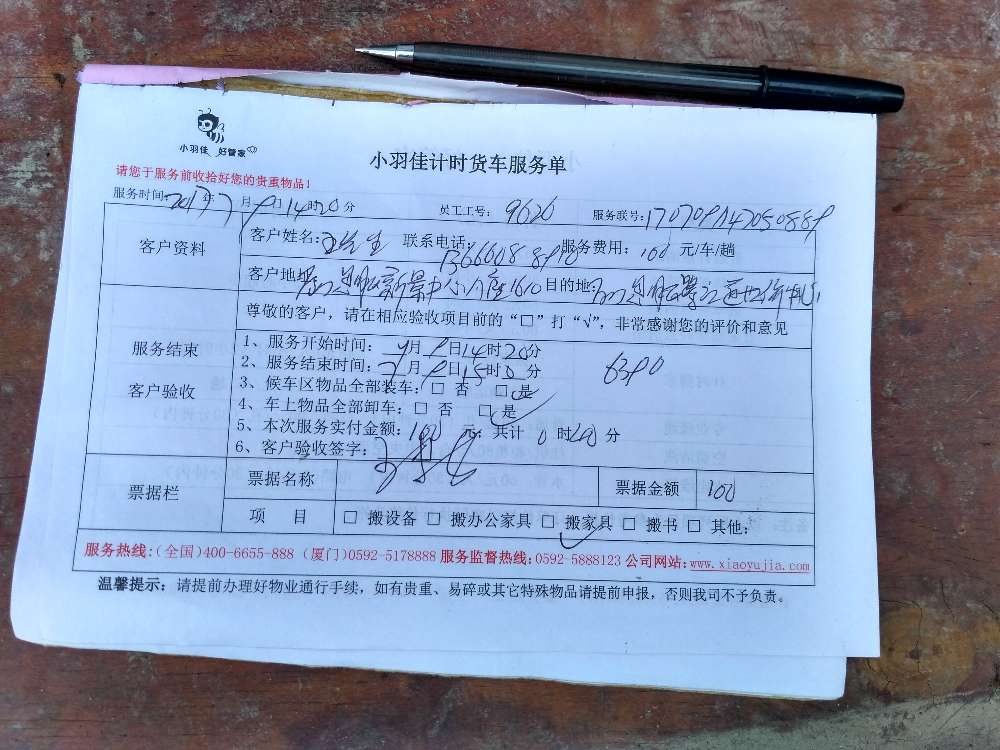 小羽佳 好管家
小羽佳计时货车服务单
请您于服务前收拾好您的贵重物品!
服务时间: 2017年7月9日14时20分 员工工号: 9626 服务联号:
客户资料
客户姓名: 王先生 联系电话: 服务费用: 100 元/车/趟
客户地址: 目的地:
尊敬的客户，请在相应验收项目前的“□”打“√”，非常感谢您的评价和意见
服务结束
客户验收
1、服务开始时间: 7月9日14时20分
2、服务结束时间: 7月9日15时0分
3、候车区物品全部装车: □ 否 □ 是
4、车上物品全部卸车: □ 否 □ 是
5、本次服务实付金额: 100 元; 共计 0 时40分
6、客户验收签字:
票据栏
票据名称 票据金额 100
项 目 □ 搬设备 □ 搬办公家具 □ 搬家具 □ 搬书 □ 其他:
服务热线:(全国)400-6655-888 (厦门)0592-5178888 服务监督热线:0592-5888123 公司网站:www.xiaoyujia.com
温馨提示: 请提前办理好物业通行手续，如有贵重、易碎或其它特殊物品请提前申报，否则我司不予负责。